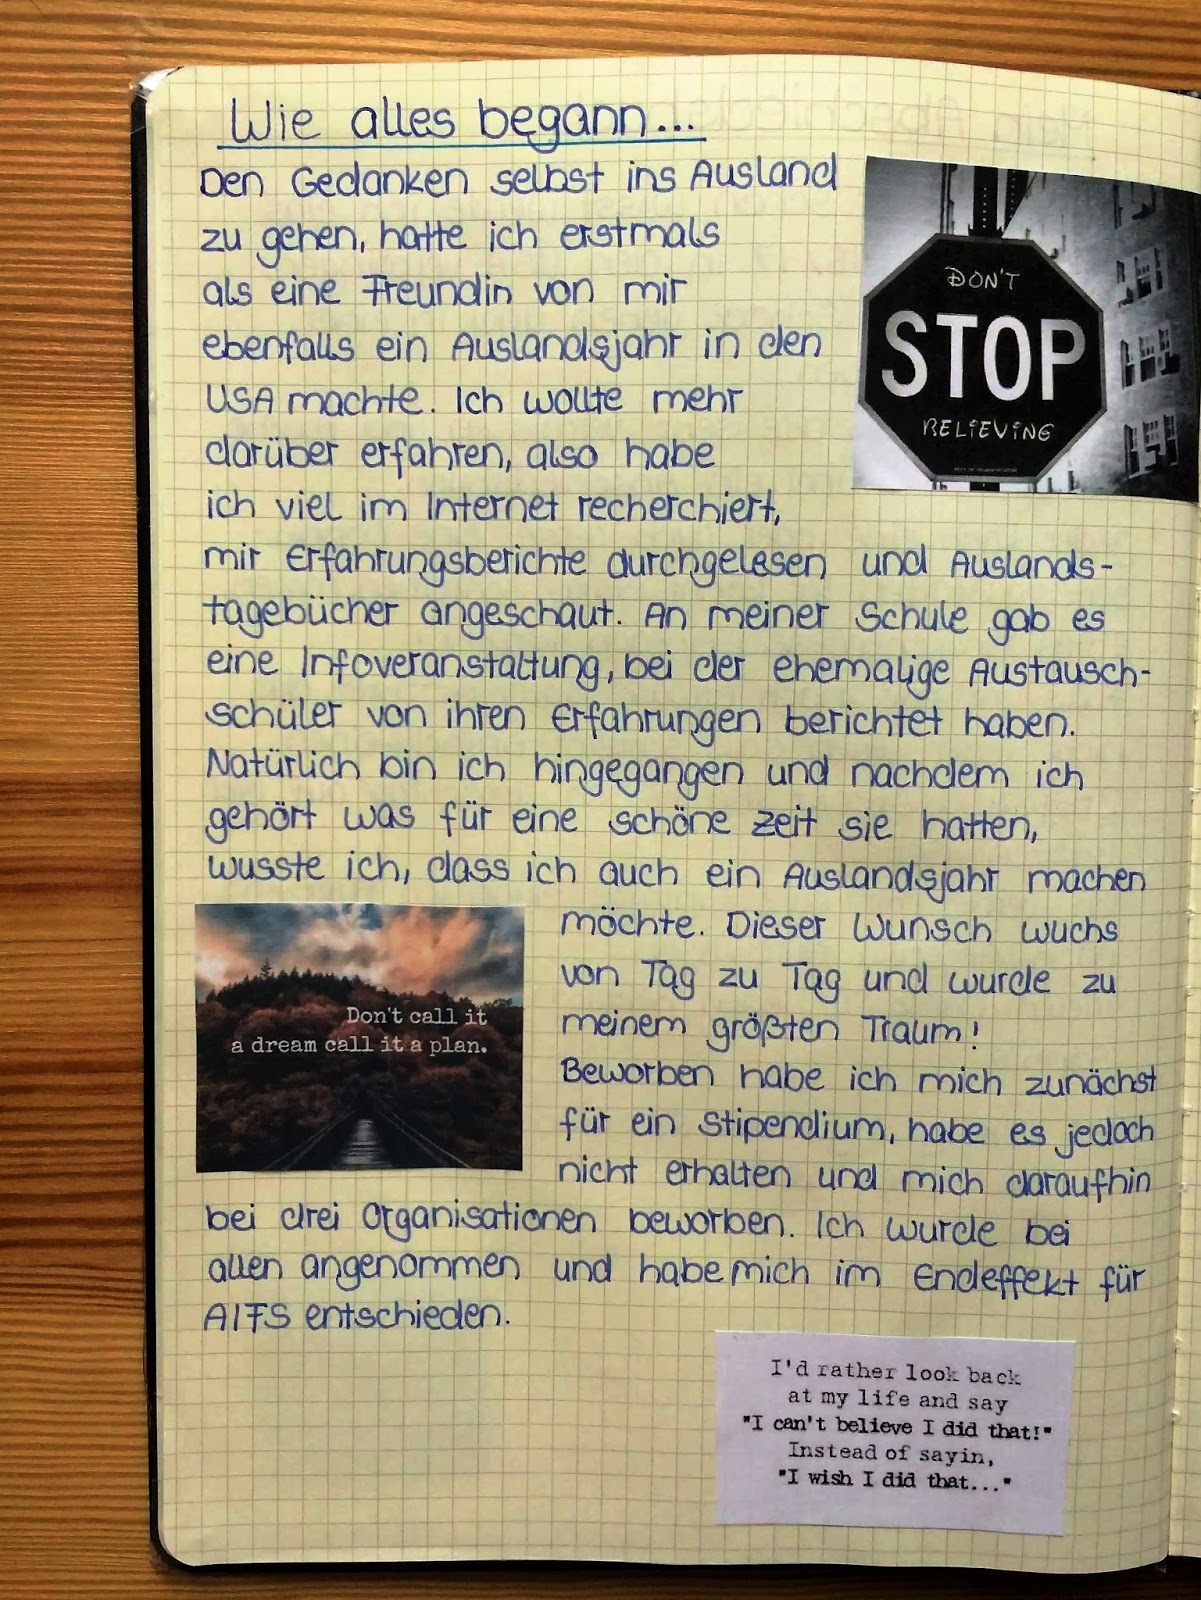 Wie alles begann...
Den Gedanken selbst ins Ausland
zu gehen, hatte ich erstmals
als eine Freundin von mir
ebenfalls ein Auslandsjahr in den
USA machte. Ich wollte mehr
darüber erfahren, also habe
ich viel im Internet recherchiert,
mir Erfahrungsberichte durchgelesen und Auslands-
tagebücher angeschaut. An meiner Schule gab es
eine Infoveranstaltung, bei der ehemalige Austausch-
schüler von ihren Erfahrungen berichtet haben.
Natürlich bin ich hingegangen und nachdem ich
gehört was für eine schöne Zeit sie hatten,
wusste ich, dass ich auch ein Auslandsjahr machen
möchte. Dieser Wunsch wuchs
von Tag zu Tag und wurde zu
meinem größten Traum!
Beworben habe ich mich zunächst
für ein Stipendium, habe es jedoch
nicht erhalten und mich daraufhin
bei drei Organisationen beworben. Ich wurde bei
allen angenommen und habe mich im Endeffekt für
AIFS entschieden.
DON'T
STOP
BELIEVING
Don't call it
a dream call it a plan.
I'd rather look back
at my life and say
"I can't believe I did that!"
Instead of sayin,
"I wish I did that..."